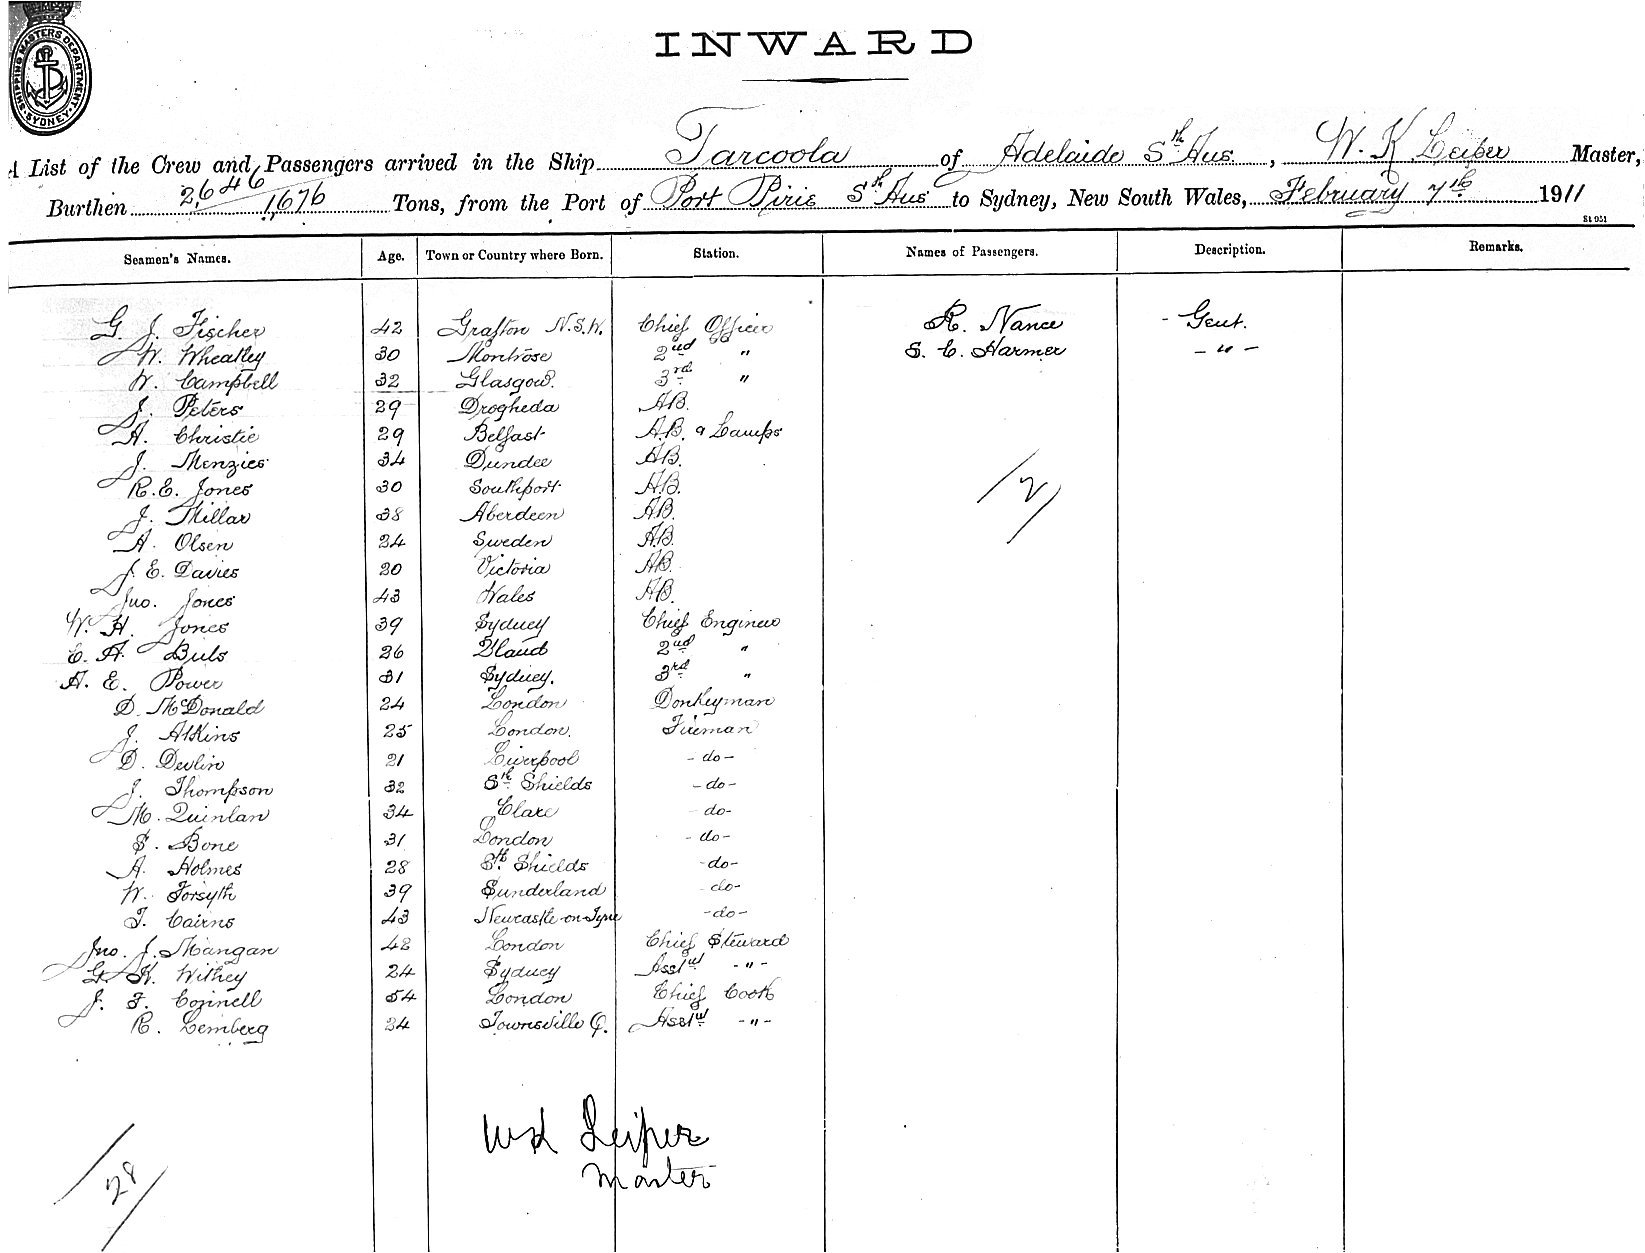 SHIPPING MASTERS DEPARTMENT. SYDNEY.
INWARD
A List of the Crew and Passengers arrived in the Ship Tarcoola of Adelaide Sth Aus., W. K Leiper Master,
Burthen 2646 / 1676 Tons, from the Port of Port Pirie Sth Aus to Sydney, New South Wales, February 7th 1911
St 951
Seamen's Names. Age. Town or Country where Born. Station. Names of Passengers. Description. Remarks.
G. J. Fischer 42 Grafton N.S.W. Chief Officer R. Nance - Gent.
W. Wheatley 30 Montrose 2nd " S. C. Harmer - " -
W. Campbell 32 Glasgow. 3rd "
J. Peters 29 Drogheda AB.
A. Christie 29 Belfast A.B. & Lamps
J. Menzies 34 Dundee AB.
R. E. Jones 30 Southport A.B.
J. Millar 38 Aberdeen AB.
A. Olsen 24 Sweden A.B.
J. E. Davies 20 Victoria AB.
Jno. Jones 43 Wales AB.
W. H. Jones 39 Sydney Chief Engineer
E. A. Buls 26 2nd "
A. E. Power 31 Sydney. 3rd "
D. McDonald 24 London Donkeyman
J. Atkins 25 London. Fireman
D. Devlin 21 Liverpool - do -
J. Thompson 32 Sth Shields - do -
M. Quinlan 34 Clare do -
S. Bone 31 London - do -
A. Holmes 28 Sth Shields - do -
W. Forsyth 39 Sunderland - do -
T. Cairns 43 Newcastle-on-Tyne - do -
Jno. J. Mangan 42 London Chief Steward
G. H. Withey 24 Sydney Asst - " -
J. F. Cozinell 54 London Chief Cook
R. Lemberg 24 Townsville Q. Asst - " -
/2/
WK Leiper
Master
/28/